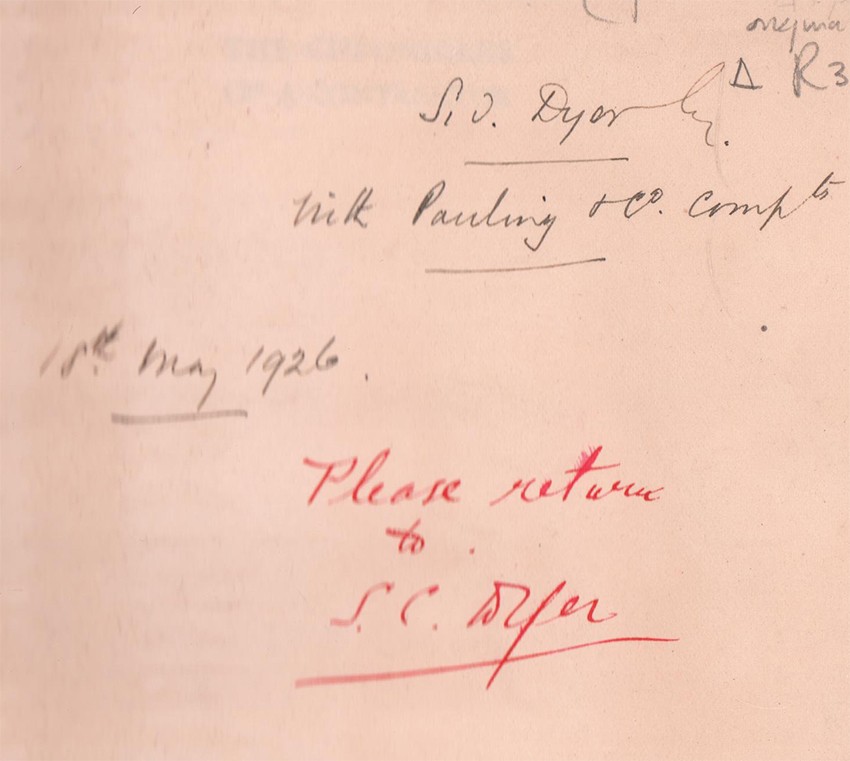 origina
Δ R3
S. J. Dyer Esq.
with Pauling & Co. compts
18th May 1926.
Please return
to.
S. C. Dyer